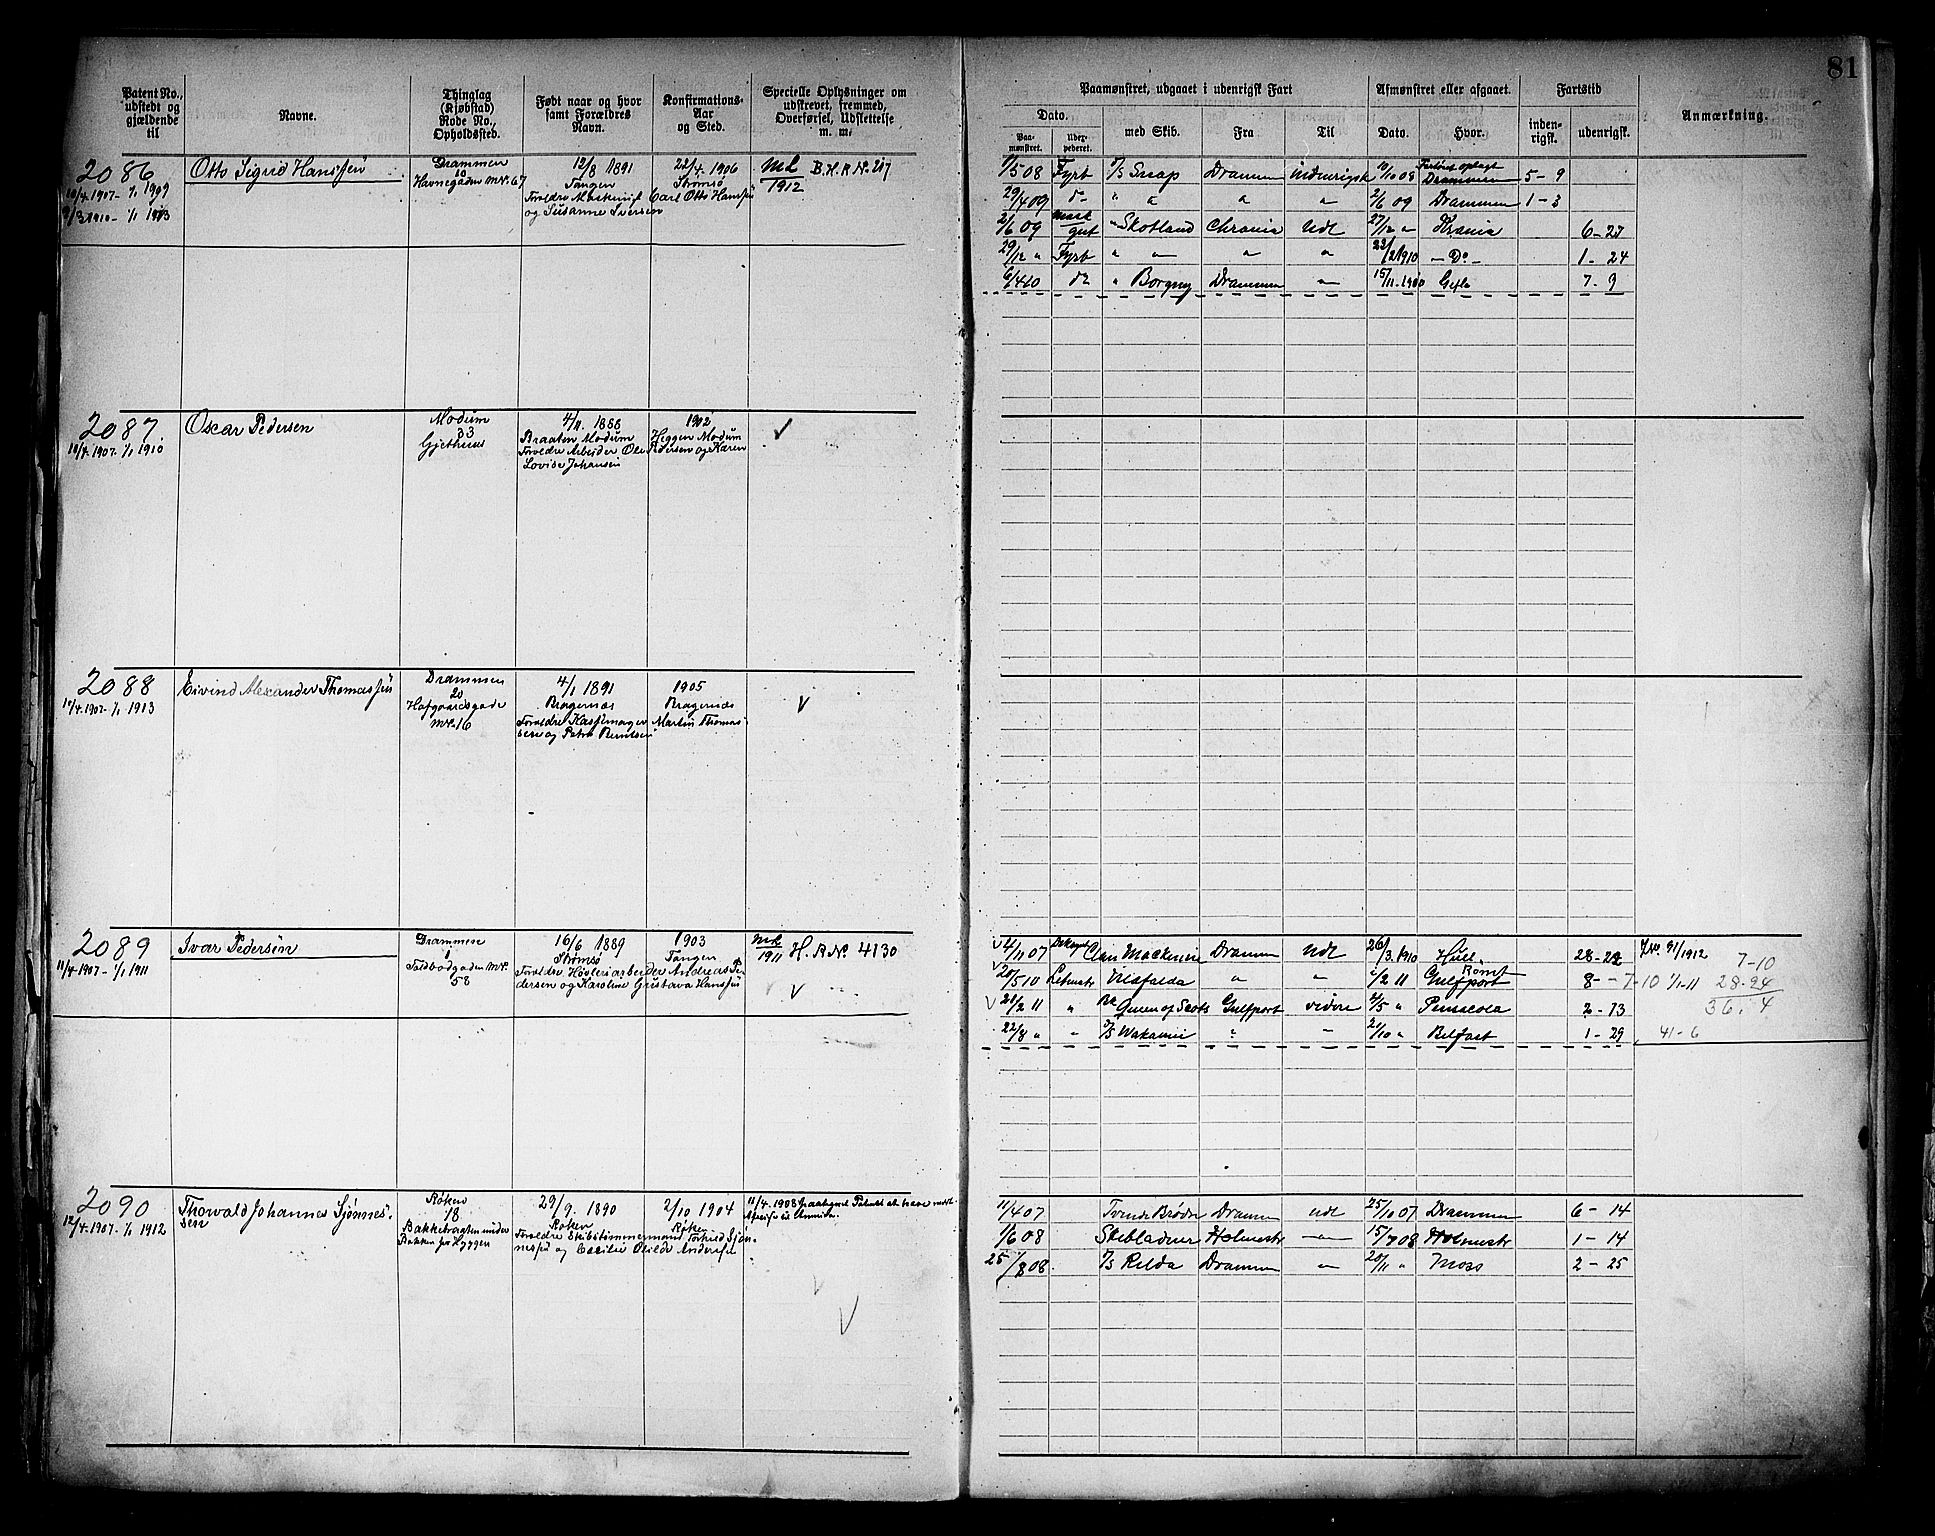 81
Patent No., udstedt og gjældende til
Navne.
Thinglag (Kjøbstad) Rode No., Opholdssted.
Født naar og hvor samt Forældres Navn.
Konfirmations-Aar og Sted.
Specielle Oplysninger om udskrevet, fremmed, Overførsel, Udslettelse m. m.
Paamønstret, udgaaet i udenrigsk Fart
Afmønstret eller afgaaet.
Fartstid
Anmærkning.
Dato.
Paa-mønstret.
med Skib.
Fra
Til
Dato.
Hvor.
inden-rigsk.
udenrigsk.
2086
11/4.1907- 1/1 1909
Otto Sigrid Hanssen
Drammen
10
Havnegaden M.N. 67
12/8 1891
Tangen
og Susanne Iversen
22/4. 1906
Strømsø
Carl Otto Hanssen
Mk/1912 B.H.R.No. 217
1/5 08 Fyrb S/S Snap Drammen indenrigsk 10/10 08 Drammen 5-9
29/4 09 do " " " " 2/6 09 Drammen 1-3
2/6 09 Mask gut " Skotland Chrania Udl 27/12 " Krania 6-27
29/12 " Fyrb " " " " 23/2 1910 - Do - 1-24
6/4 10 do " Borgny Drammen " 15/11.1910 Gefle 7-9
2087
11/4.1907- 1/1 1910
Oscar Pedersen
Modum
33
Gjethus
4/11. 1888
Braaten Modum
Forældre Arbeider Ole
Lovise Johansen
1902
Heggen Modum
Pedersen og Karen
2088
11/4.1907- 1/1 1913
Eivind Alexander Thomassen
Drammen
20
Hafgaardsgade
M.N. 16
4/1 1891
Bragernæs
sen og Petra Berntsen
1905
Bragernæs
Martin Thomas-
2089
11/4.1907- 1/1 1911
Ivar Pedersen
Drammen
9
Toldbodgaden M.N.
58
16/6 1889
Strømsø
Forældre Høvleriarbeider Andreas Pe-
dersen og Karoline Gustava Hanssen
1903
Tangen
Mk/1911 H.R.No. 4130
4/11 07 Clan Mackenzie Drammen Udl 26/3.1910 Hull 28-22
20/5 10 Letmatr Elsfalda " " 1/2 11 Gulfport 8- -7-10 1/1-11
21/2 11 " Bk Queen of Scots Gulfport videre 4/5 " Pensacola 2-13
22/8 " " S/S Wakanui " " 21/10 " Belfast 1-29
J.No. 91/1912
7-10
28-24
36.4
41-6
2090
12/4.1907- 1/1 1912
Thorvald Johannes Sjønnes-
sen
Røken
18
Bakkebraaten under
Bakken pr Hyggen
29/9. 1890
Røken
Forældre Skibstømmermand Torkild Sjøn-
nessen og Cecilie Olilde Andersen
2/10 1904
Røken
11/4 07 Tvende Brødre Drammen Udl 25/10 07 Drammen 6-14
1/6 08 Skibladner Holmestr " 15/7 08 Holmestr 1-14
25/8 08 S/S Rilda Drammen " 20/11 " Moss 2-25